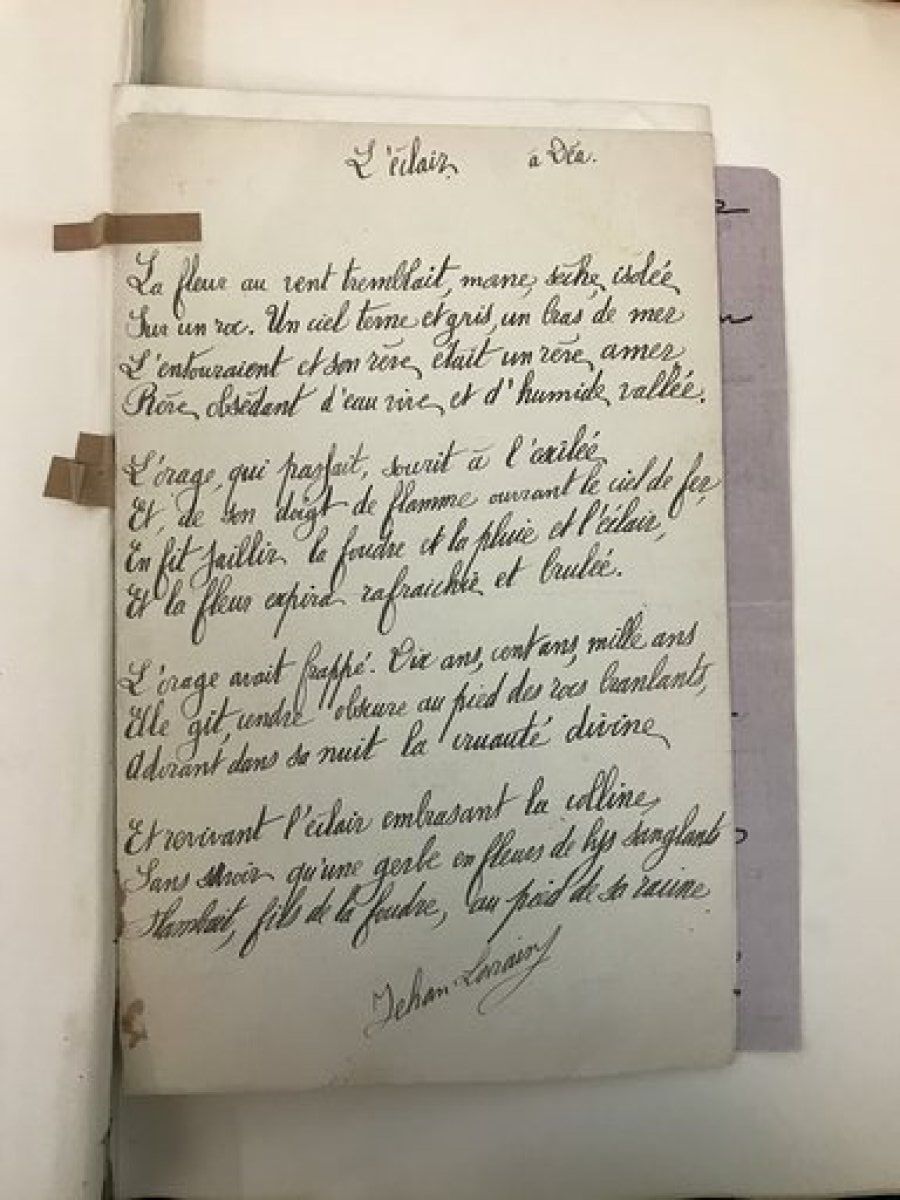 L'éclair à Déa.
La fleur au vent tremblait, morne, sèche, isolée
Sur un roc. Un ciel terne et gris, un bras de mer
L'entouraient et son rêve, était un rêve amer,
Rêve, obsédant d'eau vive, et d'humide vallée.
L'orage, qui passait, sourit à l'exilée
Et, de son doigt de flamme ouvrant le ciel de fer,
En fit jaillir la foudre et la pluie et l'éclair,
Et la fleur expira rafraichie et brulée.
L'orage avait frappé. Dix ans, cent ans, mille ans
Elle git, cendre obscure au pied des rocs branlants,
Adorant dans sa nuit la cruauté divine
Et revivant l'éclair embrasant la colline,
Sans savoir qu'une gerbe en fleurs de lys sanglants
Flambait, fils de la foudre, au pied de sa racine
Jehan Lorrain